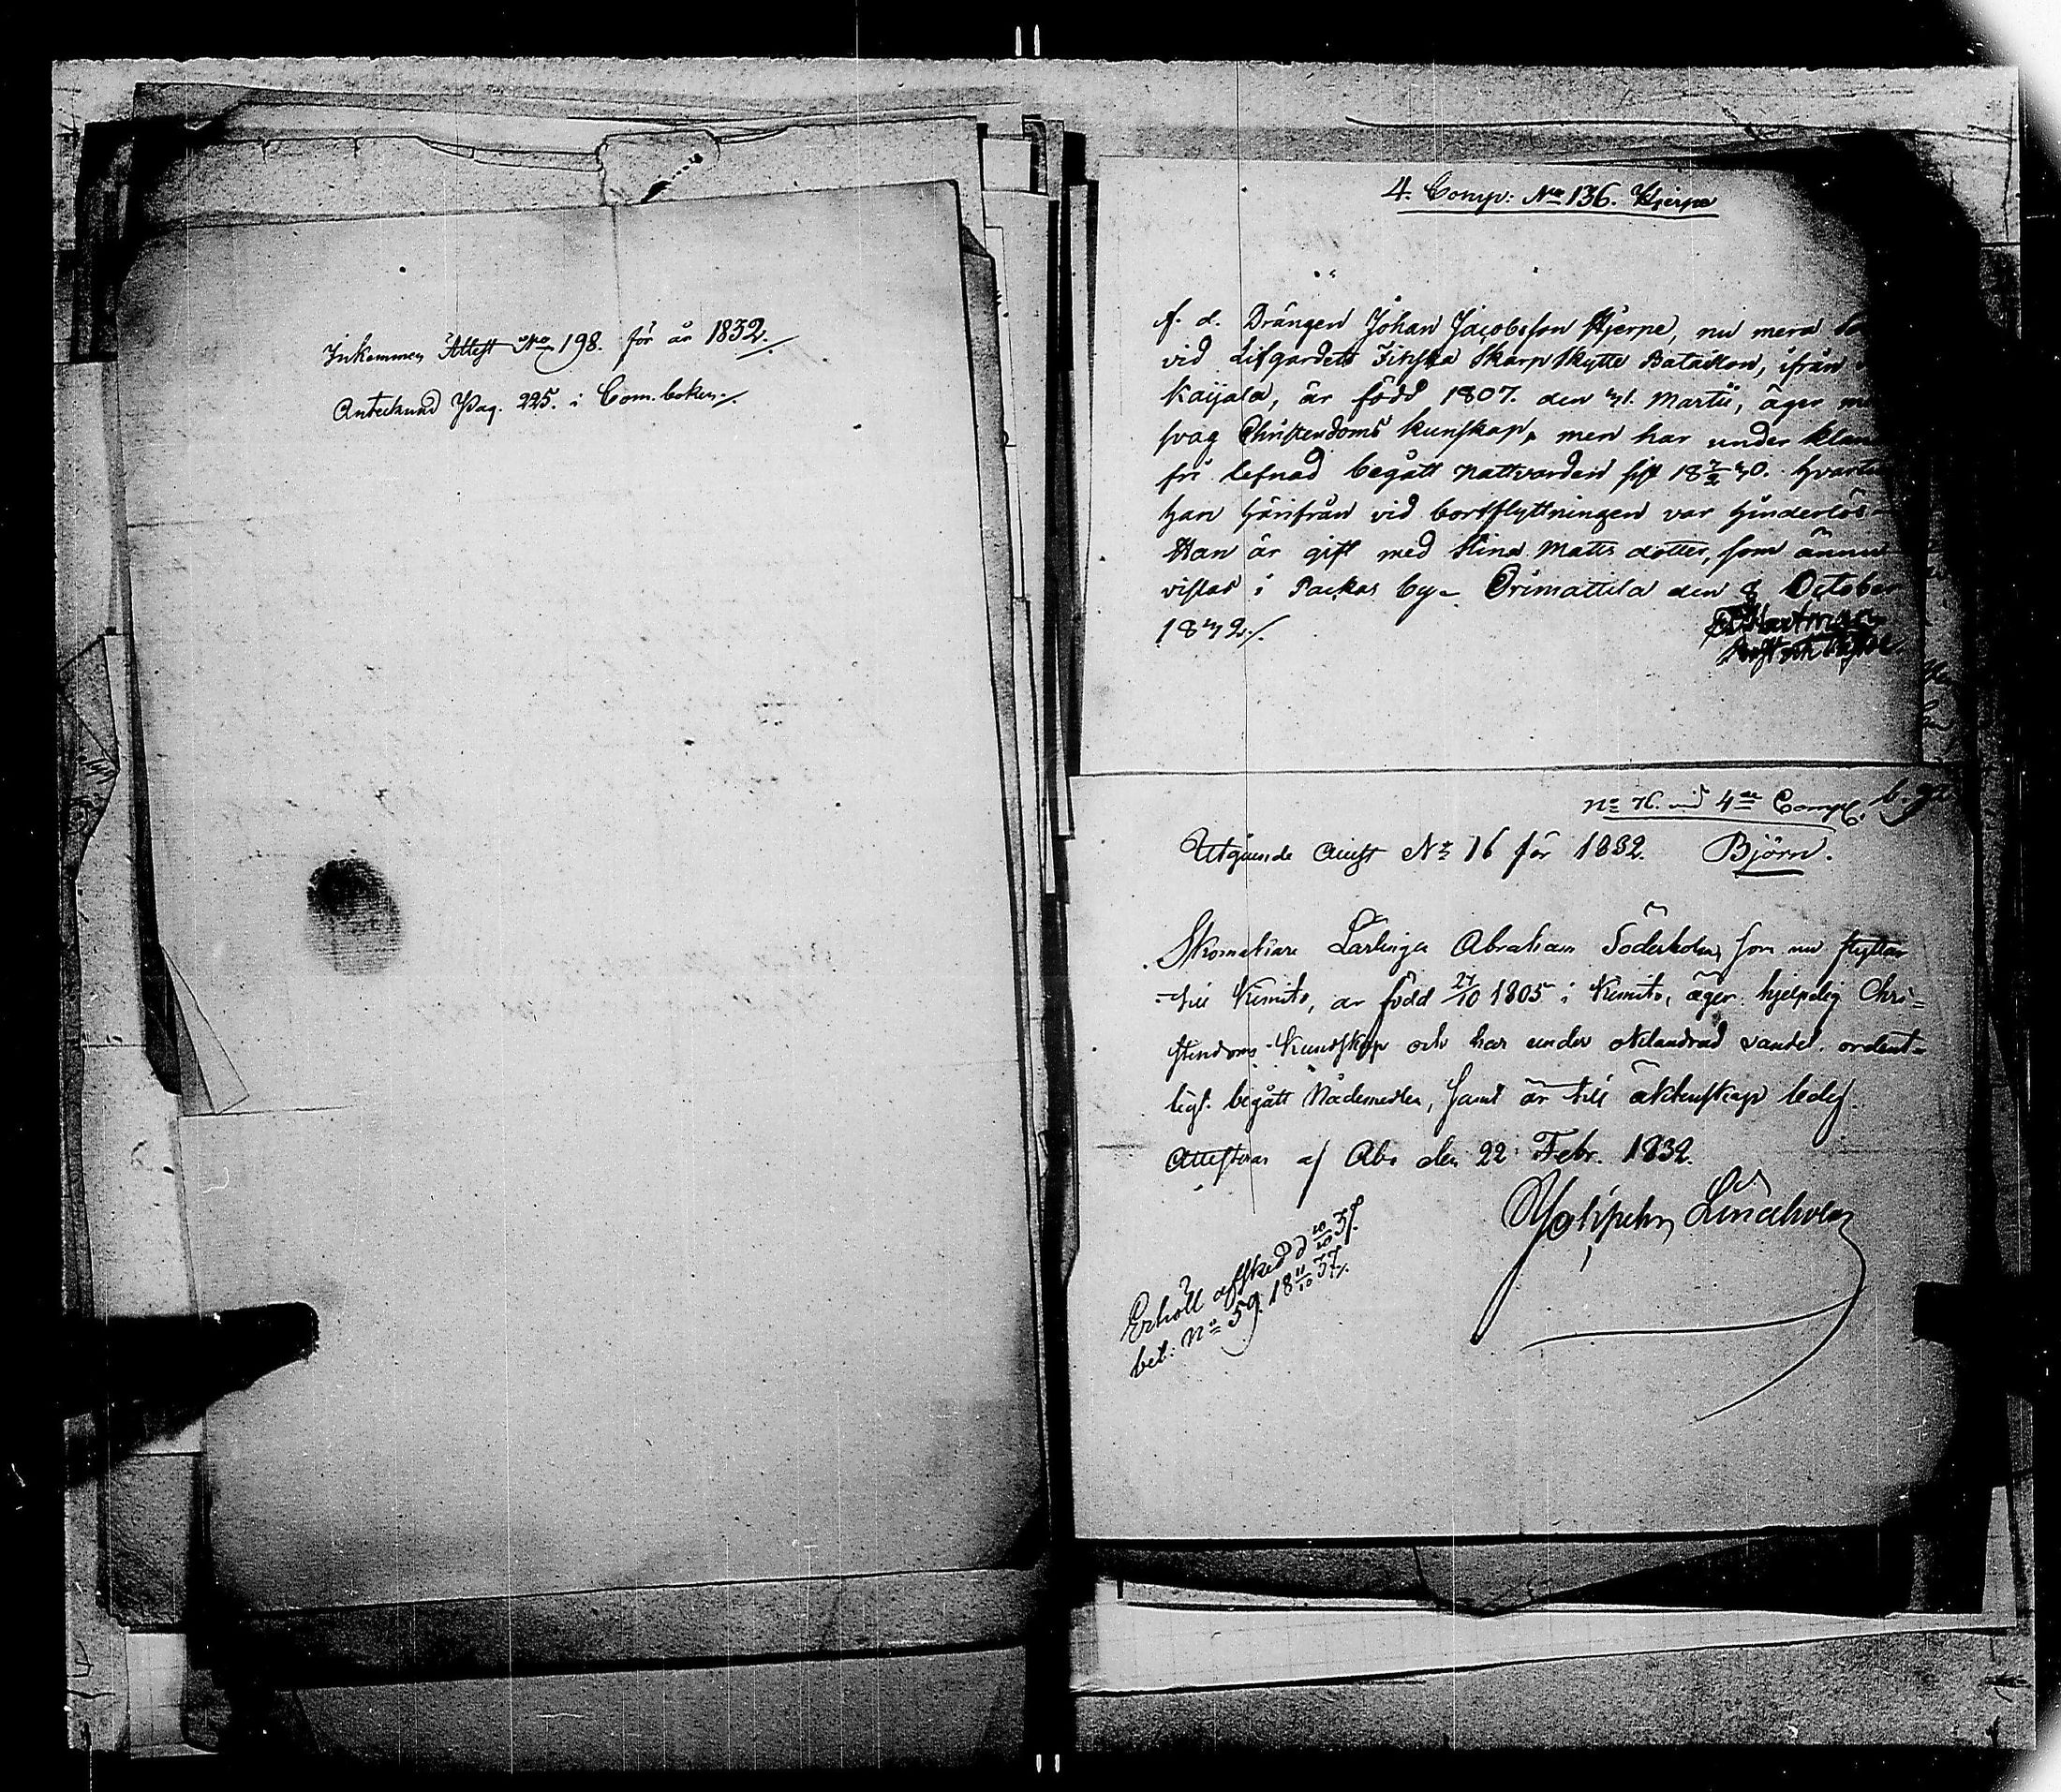 Inkommen Attest No 198. för år 1832./.
Antecknad Pag. 225. i Com. boken./.
4. Comp: No 136. Hjerpe
f. d. Drängen Johan Jacobsson Hjerpe, nu mera
vid Lifgardets Finska Skarpskytte Bataillon, ifrån
Kaijala, är född 1807. den 31. Martii, äger
svag Christendoms kunskap, men har under
fri lefnad begått Nattvarden sist 18 7/2 30.
han härifrån vid bortflyttningen var hinderlös
Han är gift med Stina Matts dotter, som ännu
vistas i Packas by. Orimattila den 8 October
1832./.
No 76. vid 4de Comp.
Utgående attest No 16 för 1832. Björn.
Skomakare Lärlingen Abraham Söderholm som nu flyttar
till Kimito, är född 27/10 1805 i Kimito, äger hjelplig Chri-
stendoms-Kundskap och har under oklandrad vandel ordent-
ligt begått Nådemedlen, samt är till äktenskap ledig.
Attesteras af Åbo den 22 Febr. 1832.
Lindholm
Erhöll afsked d 10/10 37.
bet: No 59. 18 11/10 37./.